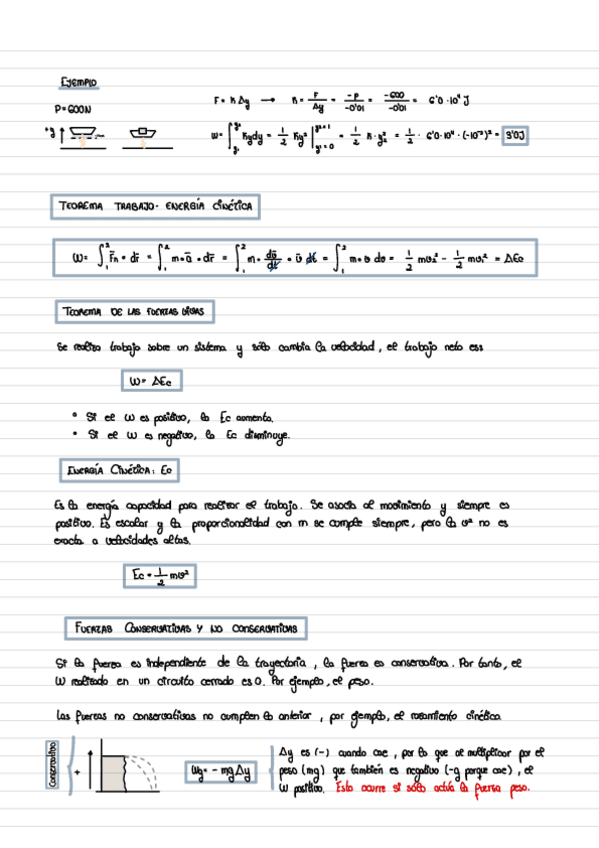 EJEMPLO
P = 600N
+y
F = K Δy → K = F/Δy = -P/-0'01 = -600/-0'01 = 6'0·10⁴ J
W = ∫ Ky dy = 1/2 Ky² | y²=1 y¹=0 = 1/2 K·y₂² = 1/2 · 6'0·10⁴ · (-10⁻²)² = 3'0J
TEOREMA TRABAJO- ENERGÍA CINÉTICA
W = ∫₁² F̄n • dr̄ = ∫₁² m•ā • dr̄ = ∫₁² m• dῡ/dt • ῡ dt = ∫₁² m•υ dυ = 1/2 mυ₂² - 1/2 mυ₁² = ΔEc
TEOREMA DE LAS FUERZAS VIVAS
Se realiza trabajo sobre un sistema y sólo cambia la velocidad, el trabajo neto es:
W = ΔEc
• Si el W es positivo, la Ec aumenta.
• Si el W es negativo, la Ec disminuye.
ENERGÍA CINÉTICA: Ec
Es la energía capacidad para realizar el trabajo. Se asocia al movimiento y siempre es
positivo. Es escalar y la proporcionalidad con m se cumple siempre, pero la υ² no es
exacta a velocidades altas.
Ec = 1/2 mυ²
FUERZAS CONSERVATIVAS Y NO CONSERVATIVAS
Si la fuerza es independiente de la trayectoria, la fuerza es conservativa. Por tanto, el
W realizado en un circuito cerrado es 0. Por ejemplo, el peso.
Las fuerzas no conservativas no cumplen lo anterior, por ejemplo, el rozamiento cinético
Conservativo
+
Wg = - mgΔy
Δy es (-) cuando cae, por lo que al multiplicar por el
peso (mg) que también es negativo (-g porque cae), el
W positivo. Esto ocurre si sólo actúa la fuerza peso.